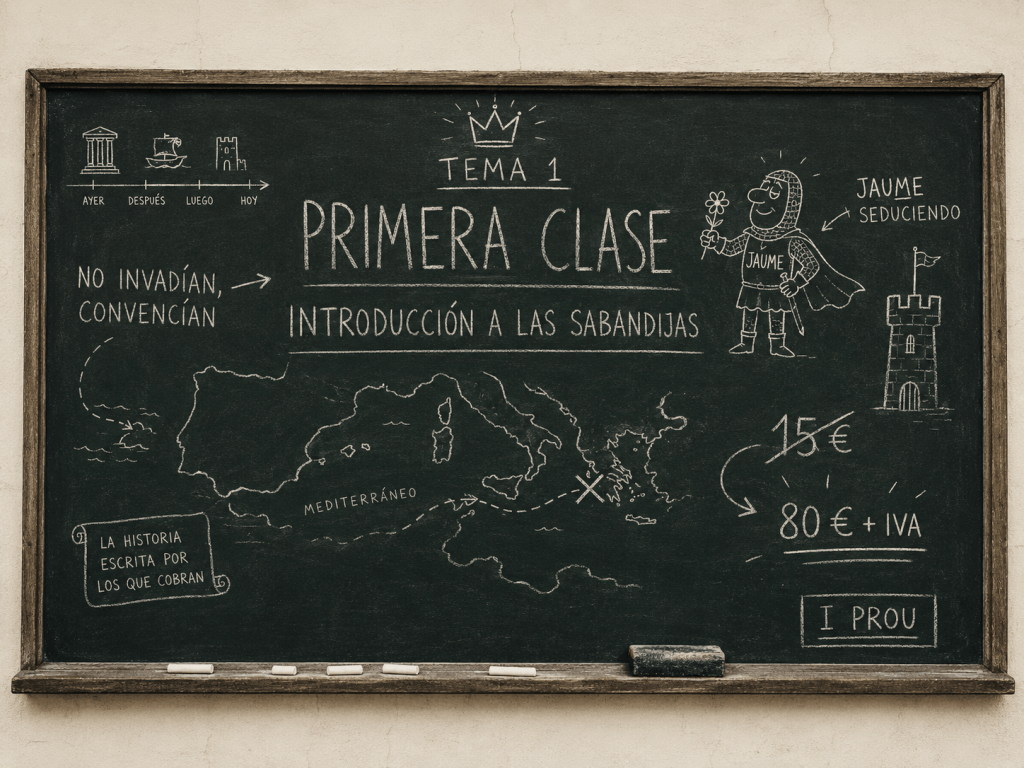 TEMA 1
PRIMERA CLASE
INTRODUCCIÓN A LAS SABANDIJAS
AYER DESPUÉS LUEGO HOY
NO INVADÍAN,
CONVENCÍAN
JAUME
SEDUCIENDO
JAUME
MEDITERRÁNEO
15 €
80 € + IVA
LA HISTORIA
ESCRITA POR
LOS QUE COBRAN
I PROU